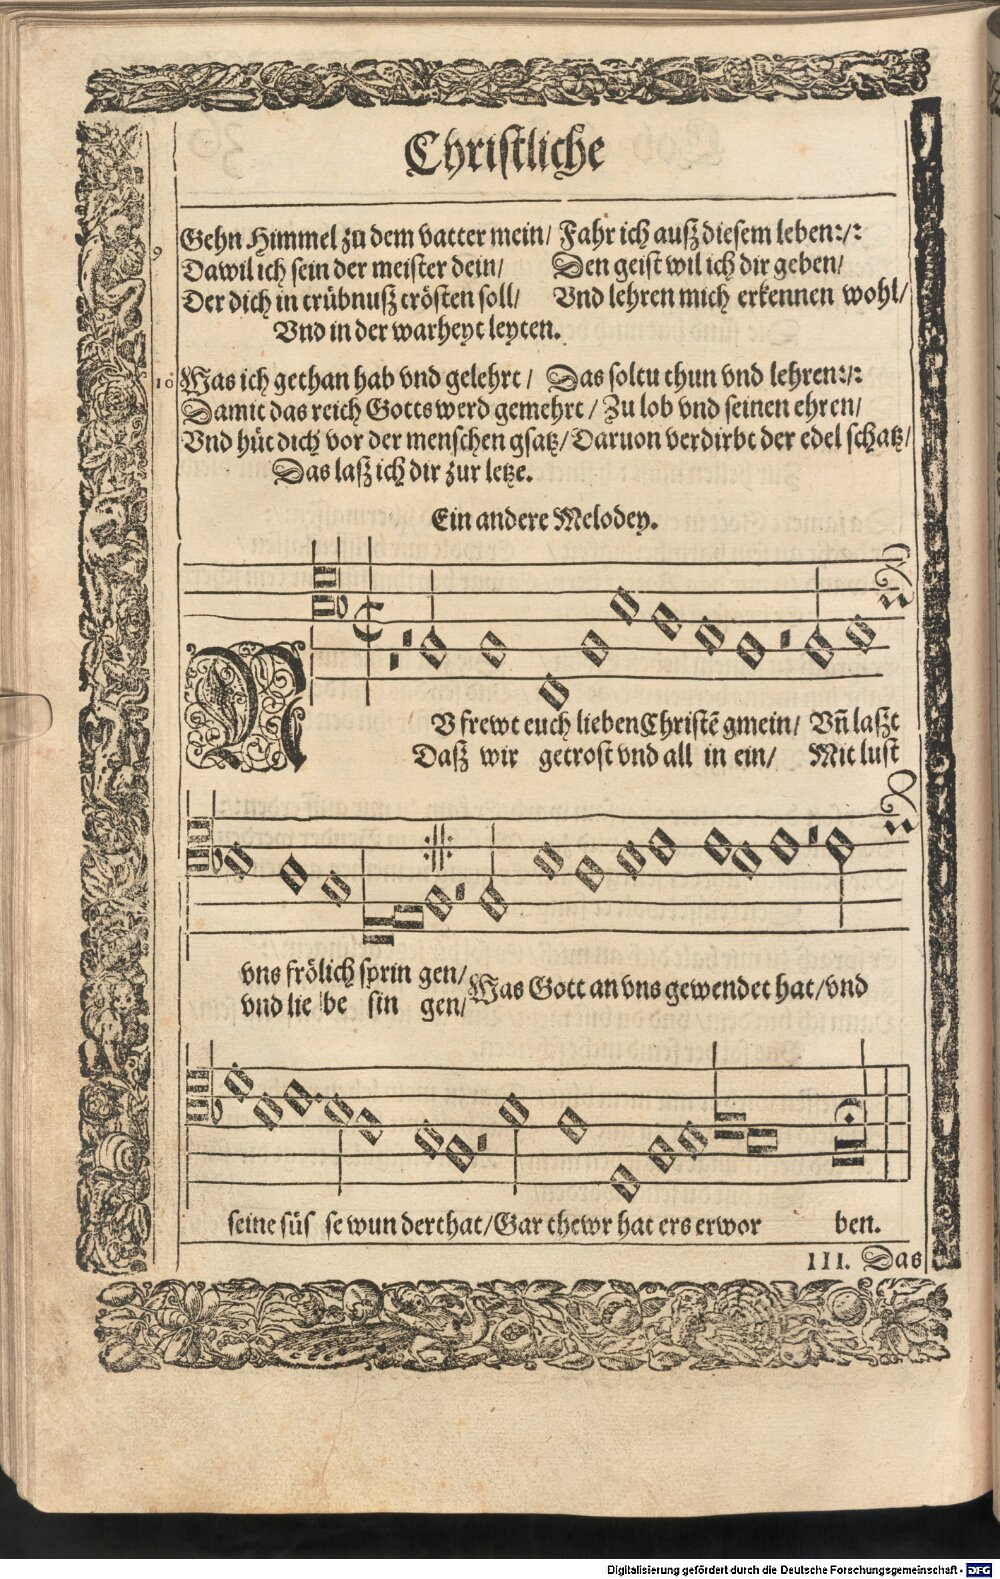 Christliche
9 Gehn Himmel zu dem vatter mein/ Fahr ich auß diesem leben:/:
Da wil ich sein der meister dein/ Den geist wil ich dir geben/
Der dich in trübnuß trösten soll/ Vnd lehren mich erkennen wohl/
Vnd in der warheyt leyten.
10 Was ich gethan hab vnd gelehrt/ Das soltu thun vnd lehren:/:
Damit das reich Gotts werd gemehrt/ Zu lob vnd seinen ehren/
Vnd hüt dich vor der menschen gsatz/ Daruon verdirbt der edel schatz/
Das laß ich dir zur letze.
Ein andere Melodey.
NV frewt euch lieben Christē gmein/ Vñ laßt
Daß wir getrost vnd all in ein/ Mit lust
vns frölich sprin gen/ Was Gott an vns gewendet hat/ vnd
vnd lie be sin gen/
seine süs se wun derthat/ Gar thewr hat ers erwor ben.
III. Das
Digitalisierung gefördert durch die Deutsche Forschungsgemeinschaft - DFG